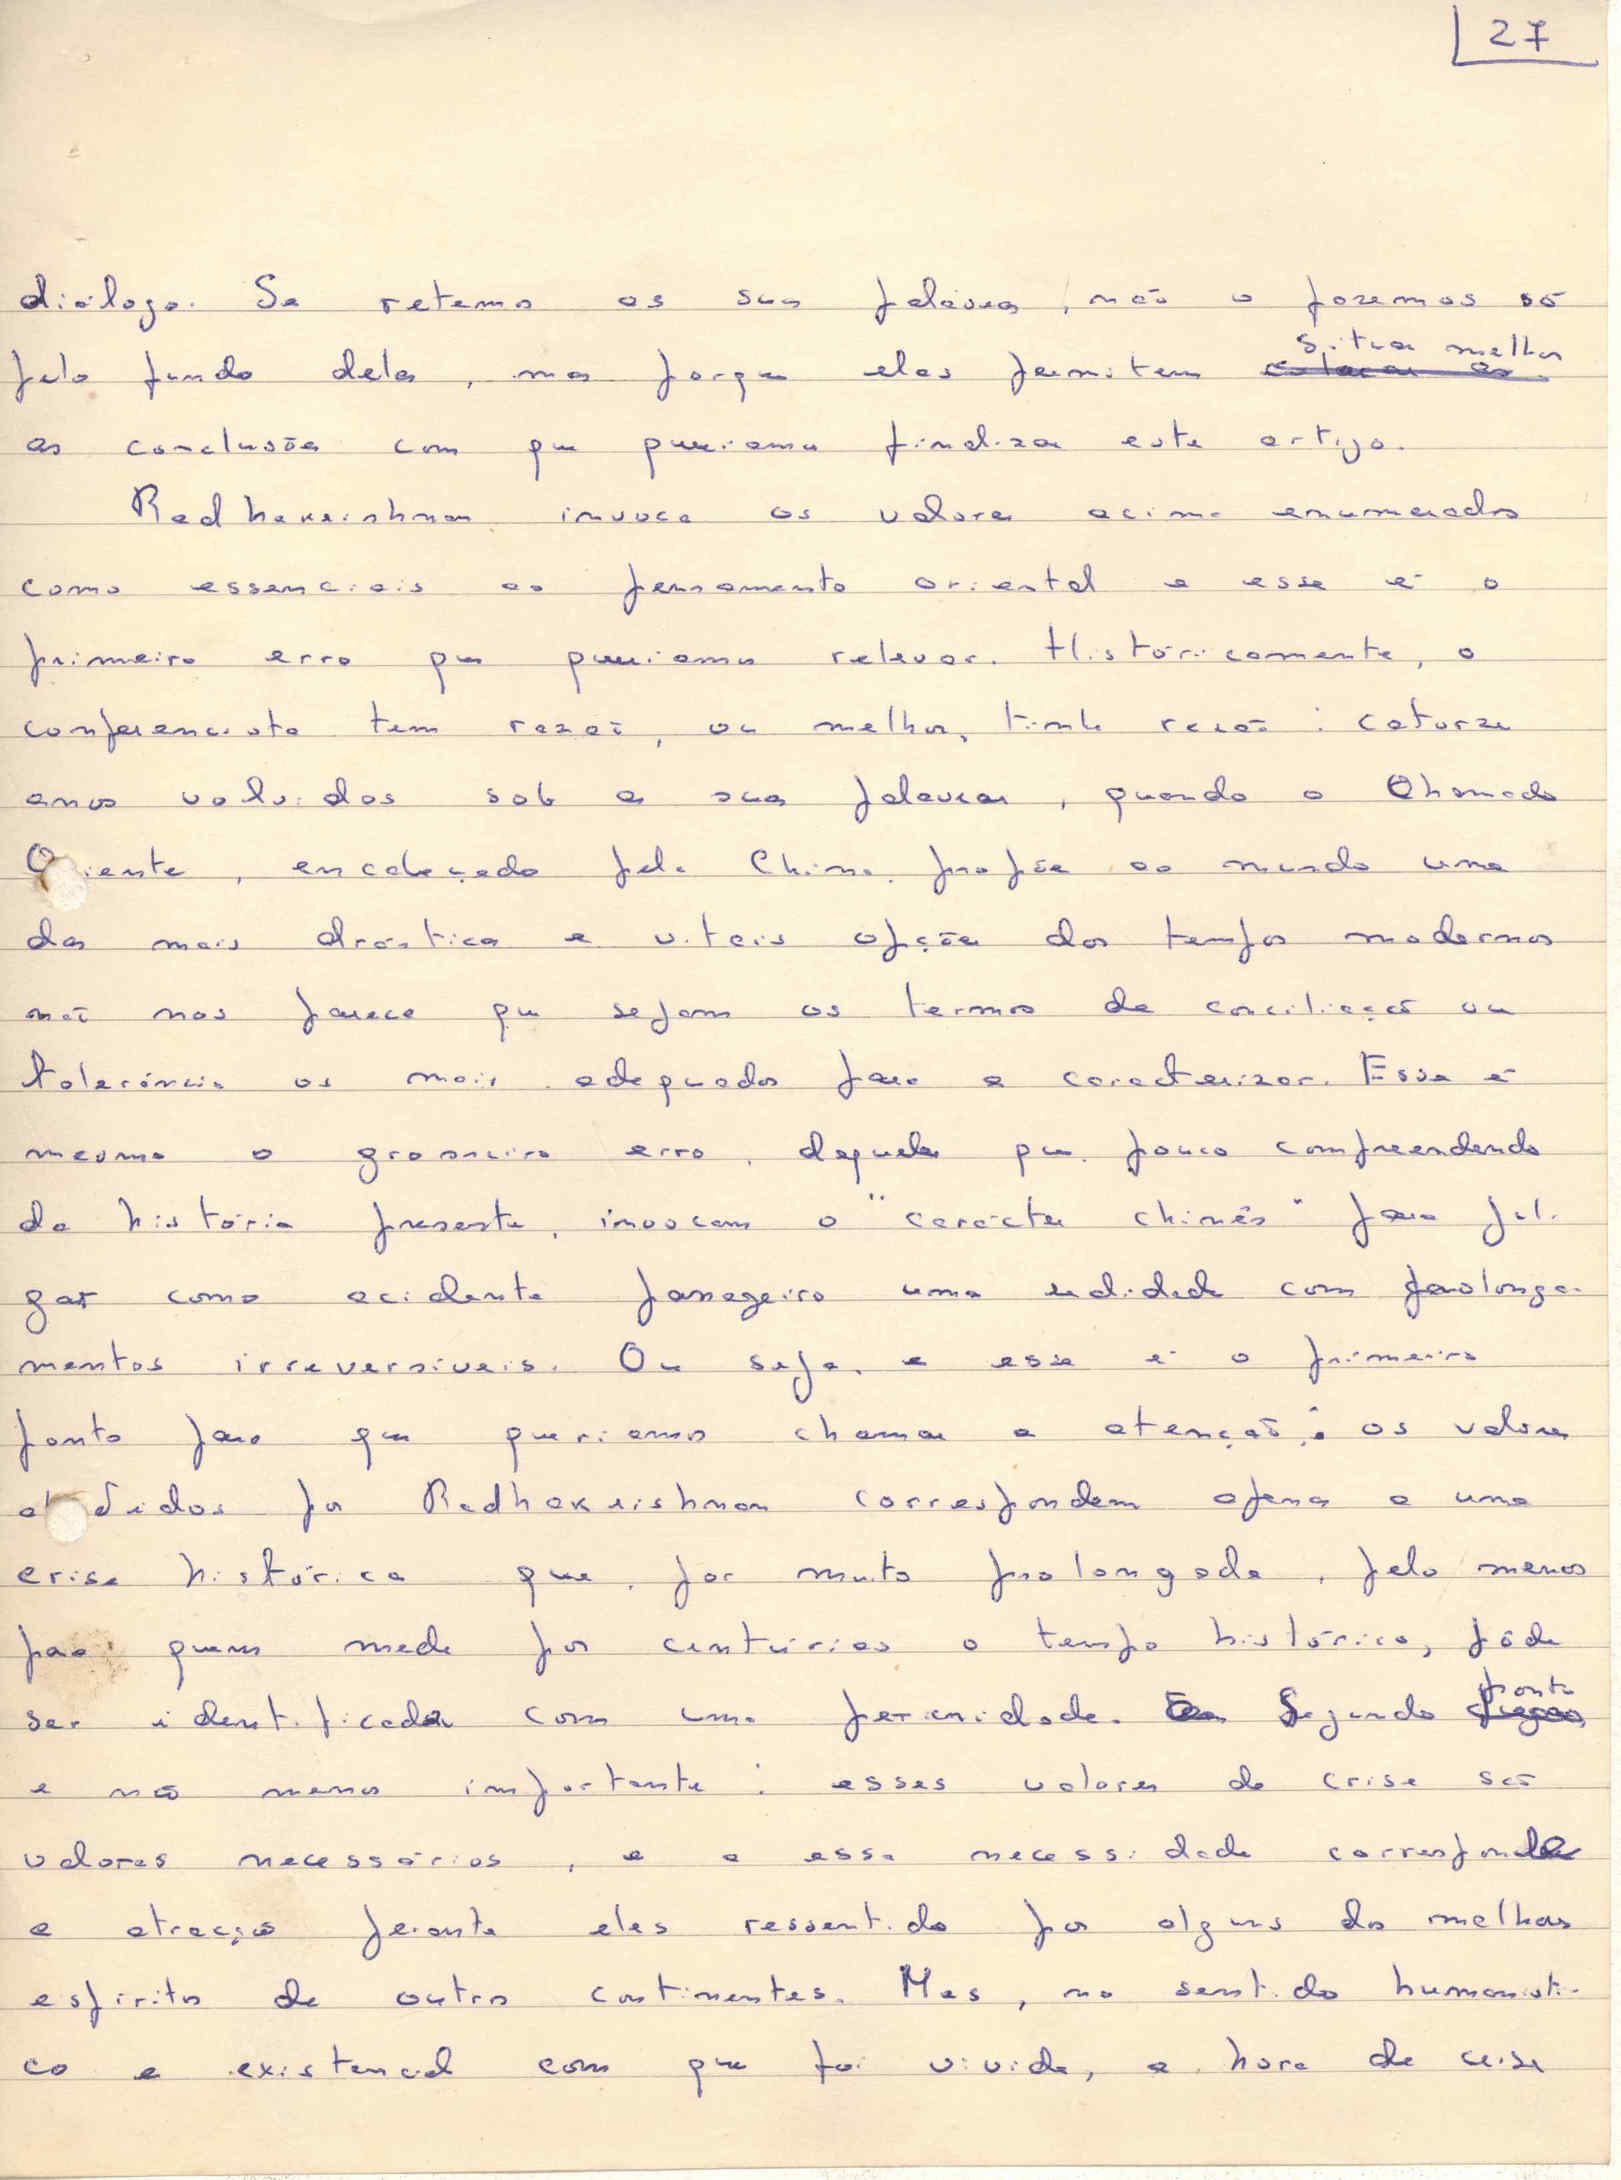 27
diálogo. Se retemos as suas palavras, não o fazemos só
pelo fundo delas, mas porque elas permitem situar melhor
as conclusões com que queríamos finalizar este artigo.
Radhakrishnan invoca os valores acima enumerados
como essenciais ao pensamento oriental e esse é o
primeiro erro que queríamos relevar. Històricamente, o
conferencista tem razão, ou melhor, tinha razão: catorze
anos volvidos sob as suas palavras, quando o Chamado
Oriente, encabeçado pela China, propõe ao mundo uma
das mais drásticas e vitais opções dos tempos modernos
não nos parece que sejam os termos de conciliação ou
tolerância os mais adequados para a caracterizar. Esse é
mesmo o grosseiro erro, daqueles que, pouco compreendendo
da história presente, invocam o "carácter chinês" para jul-
gar como acidente passageiro uma realidade com prolonga-
mentos irreversíveis. Ou seja, e esse é o primeiro
ponto para que queríamos chamar a atenção: os valores
aludidos por Radhakrishnan correspondem apenas a uma
crise histórica que, por muito prolongada, pelo menos
para quem mede por centúrias o tempo histórico, pôde
ser identificada com uma perenidade. Segundo ponto
e não menos importante: esses valores de crise são
valores necessários, e a essa necessidade corresponde
a atracção perante eles ressentida por alguns dos melhores
espíritos de outros continentes. Mas, no sentido humanísti-
co e existencial com que foi vivida, a hora de crise